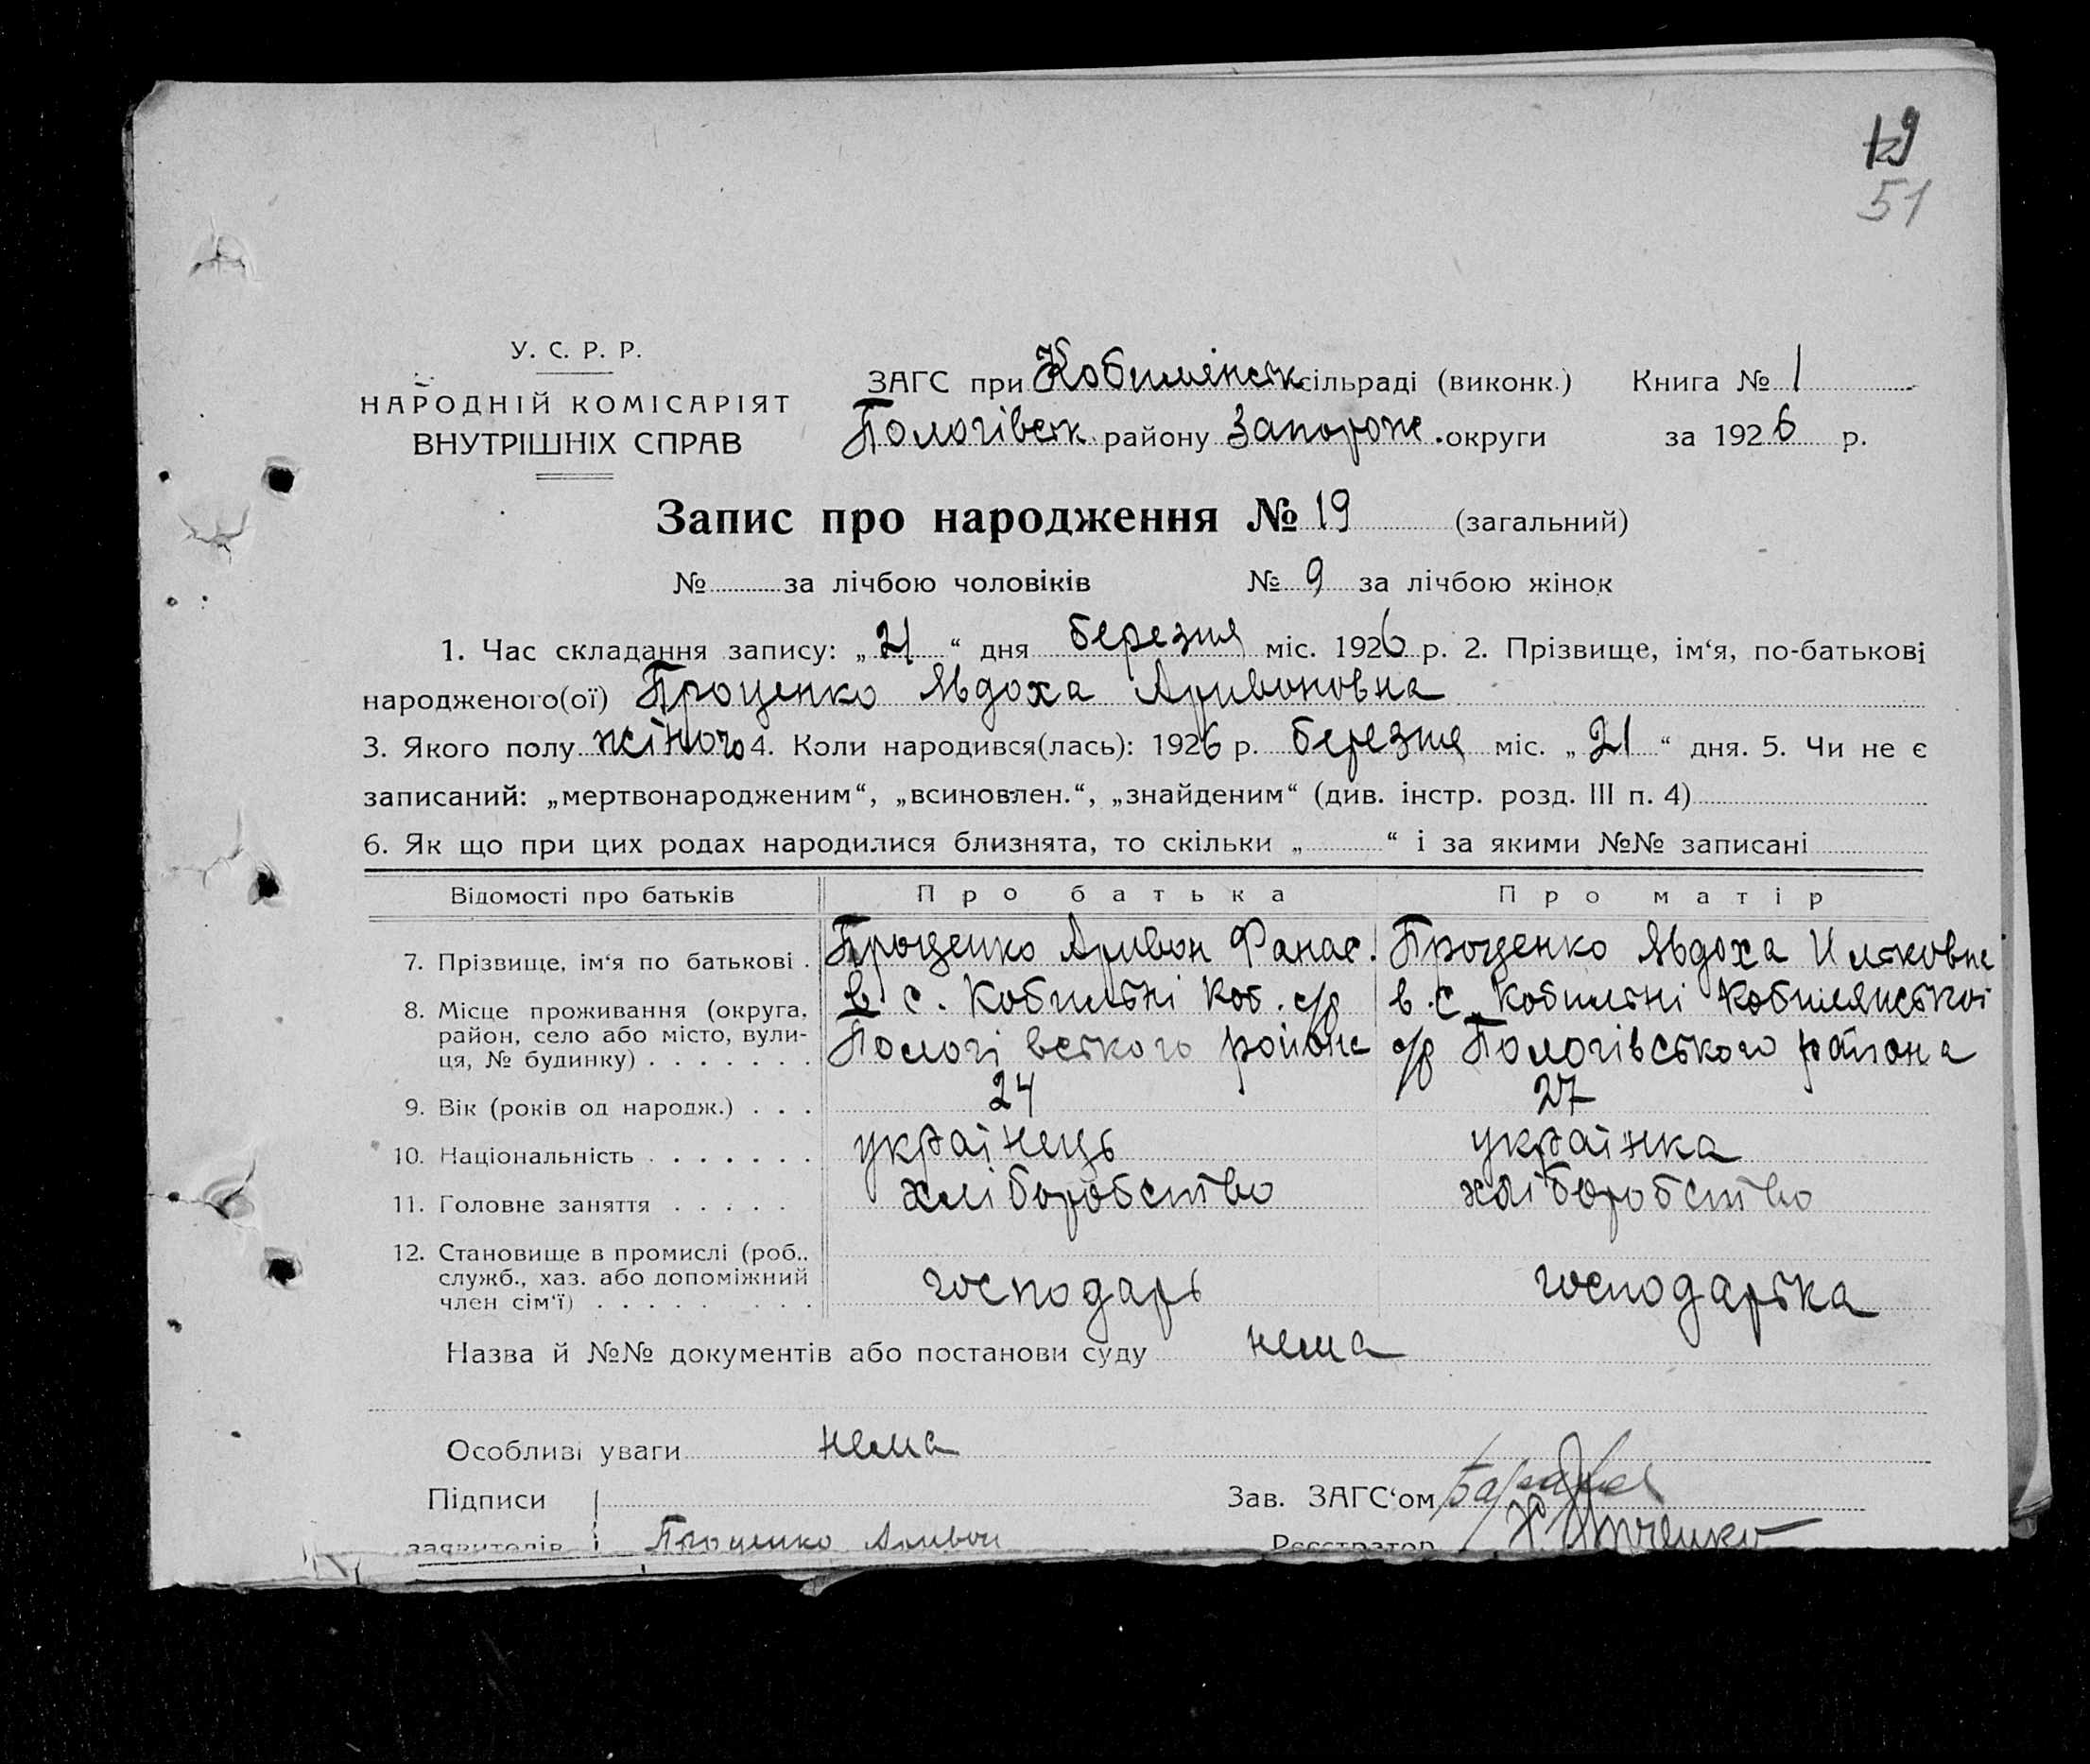 19
51
У. С. Р. Р.
НАРОДНІЙ КОМІСАРІЯТ
ВНУТРІШНІХ СПРАВ
ЗАГС при Кобилянськ. сільраді (виконк.) Книга № 1
Пологівськ. району Запорож. округи за 1926 р.
Запис про народження № 19 (загальний)
№ за лічбою чоловіків № 9 за лічбою жінок
1. Час складання запису: „21“ дня березня міс. 1926 р. 2. Прізвище, ім‘я, по-батькові
народженого(ої) Проценко Явдоха Аривоновна
3. Якого полу жіночо 4. Коли народився(лась): 1926 р. березня міс. „21“ дня. 5. Чи не є
записаний: „мертвонародженим“, „всиновлен.“, „знайденим“ (див. інстр. розд. III п. 4)
6. Як що при цих родах народилися близнята, то скільки „ “ і за якими №№ записані
Відомості про батьків Про батька Про матір
7. Прізвище, ім‘я по батькові . Проценко Аривон Фанас. Проценко Явдоха Ильковна
8. Місце проживання (округа, в с. Кобильні Коб. с/р в с. Кобильні Кобилянської
район, село або місто, вули- Пологівського района с/р Пологівського района
ця, № будинку) . . . . . . .
9. Вік (років од народж.) . . . 24 27
10. Національність . . . . . . . українець українка
11. Головне заняття . . . . . хліборобство хліборобство
12. Становище в промислі (роб.,
служб., хаз. або допоміжний господарь господарька
член сім‘ї) . . . . . . . . .
Назва й №№ документів або постанови суду нема
Особливі уваги нема
Підписи Зав. ЗАГС‘ом
заявителів Проценко Аривон Реєстратор